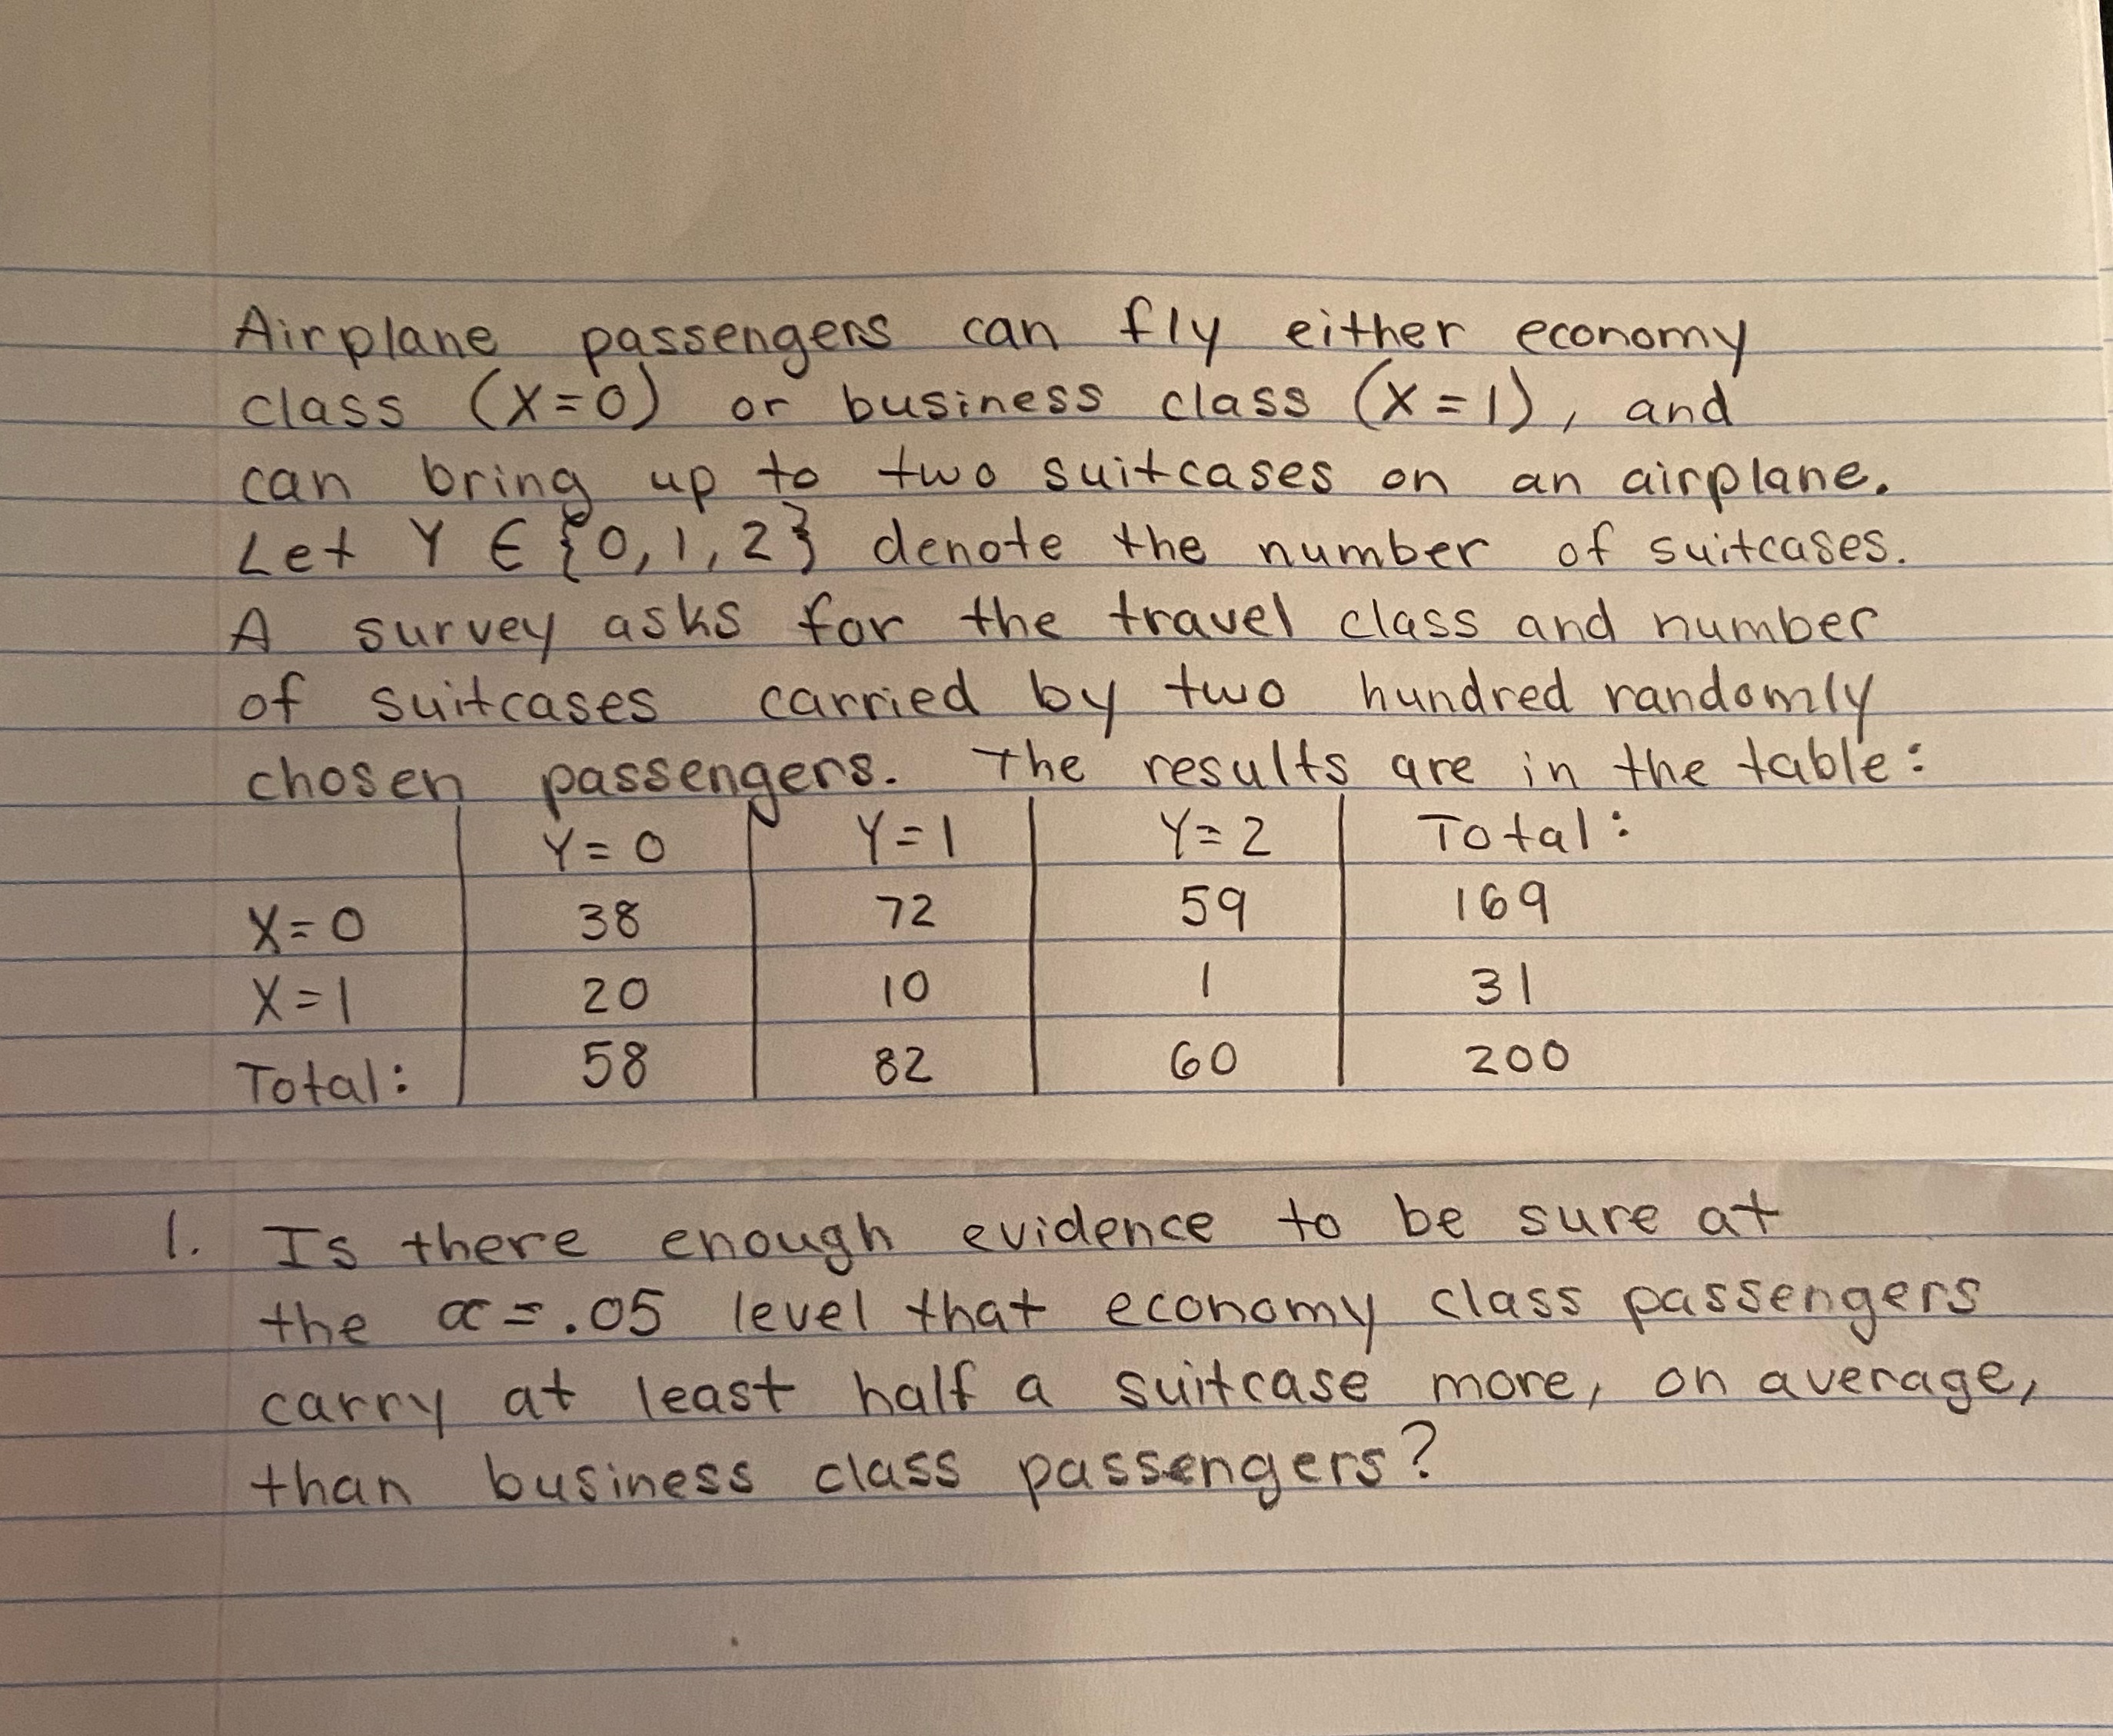 Airplane passengers can fly either economy
class (X=0) or business class (X=1), and
can bring up to two suitcases on an airplane.
Let Y ∈ {0,1,2} denote the number of suitcases.
A survey asks for the travel class and number
of suitcases carried by two hundred randomly
chosen passengers. The results are in the table:
Y=0 Y=1 Y=2 Total:
X=0 38 72 59 169
X=1 20 10 1 31
Total: 58 82 60 200
1. Is there enough evidence to be sure at
the α=.05 level that economy class passengers
carry at least half a suitcase more, on average,
than business class passengers?